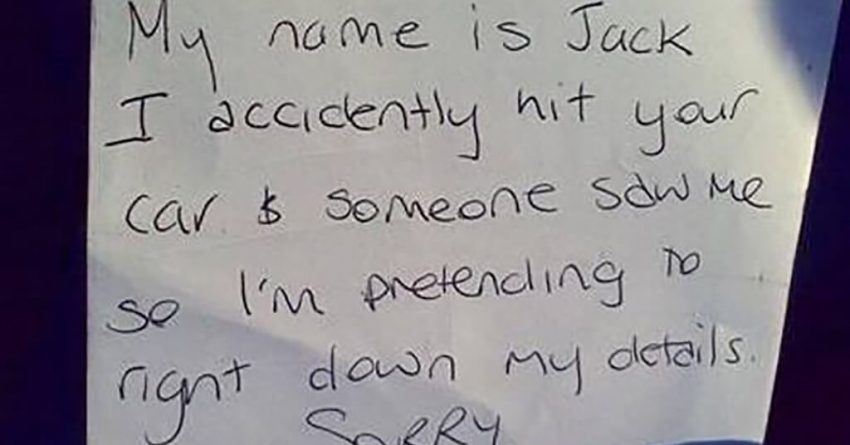 My name is Jack
I accidently hit your
car & someone saw me
so I'm pretending to
right down my details.
Sorry